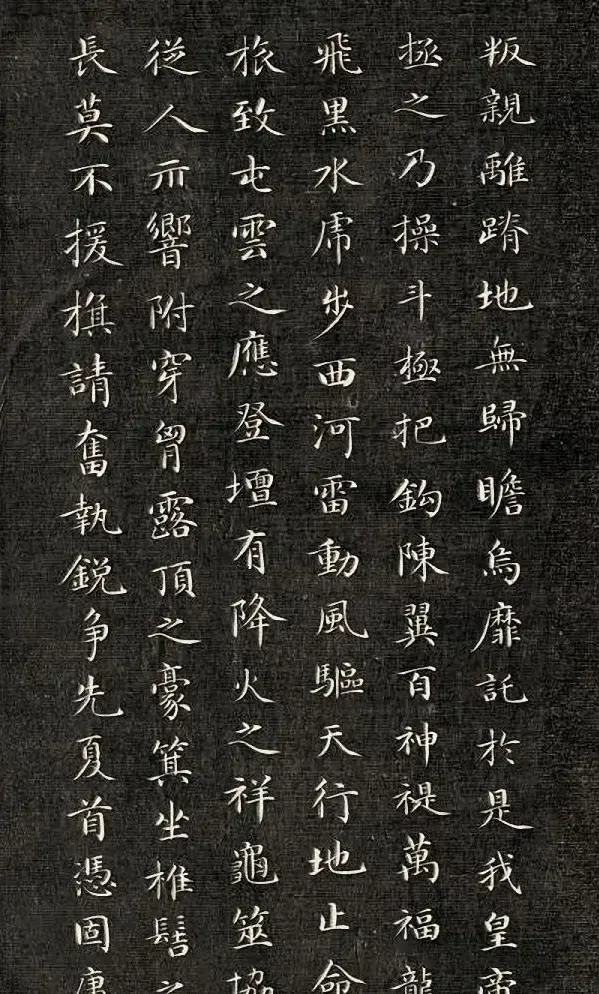 叛親離蹐地無歸瞻烏靡託於是我皇帝
拯之乃操斗極把鈎陳翼百神禔萬福龍
飛黑水虎步西河雷動風驅天行地止命
旅致屯雲之應登壇有降火之祥龜筮協
從人示響附穿胷露頂之豪箕坐椎髻之
長莫不援旗請奮執鋭争先夏首憑固庸